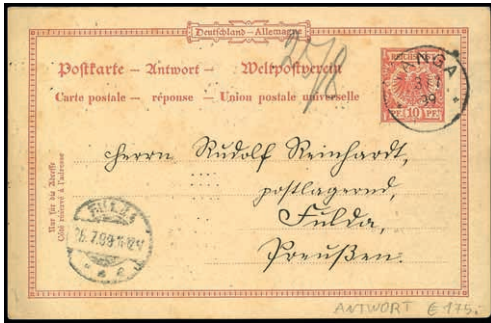 Deutschland – Allemagne
27/8
Postkarte – Antwort – Weltpostverein
Carte postale – réponse – Union postale universelle
REICHSPOST
PF 10 PF
TANGA
99
Herrn Rudolf Reinhardt,
postlagernd,
Fulda,
Preußen.
Nur für die Adresse
Côté réservé à l'adresse
FULDA
7.99
ANTWORT € 175.-